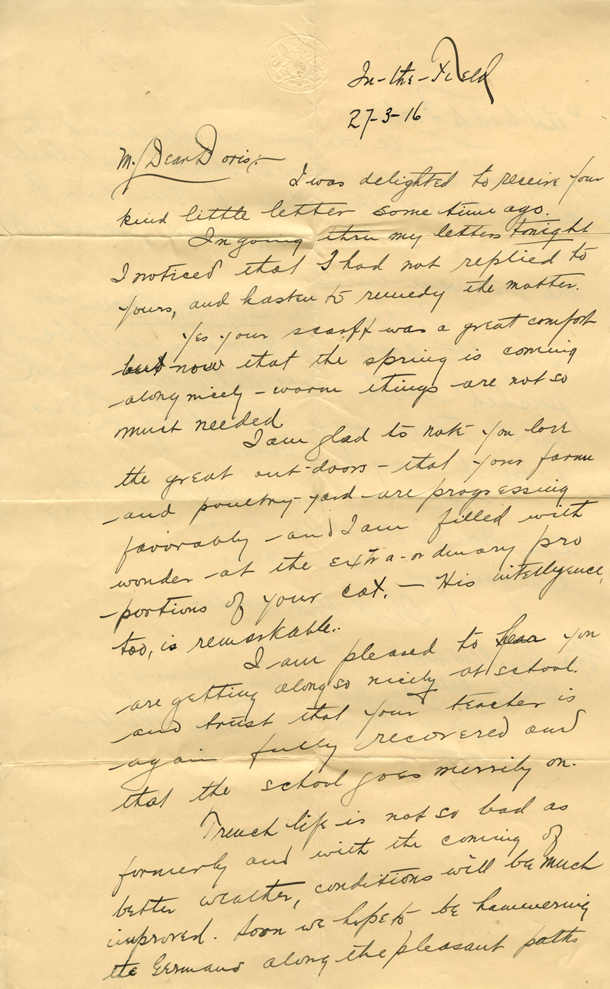 In-the-Field
27-3-16
My Dear Doris:-
I was delighted to receive your
kind little letter some time ago.
In going thru my letters tonight
I noticed that I had not replied to
yours, and hasten to remedy the matter.
Yes your scarff was a great comfort
but now that the spring is coming
along nicely - warm things are not so
much needed
I am glad to note you love
the great out-doors - that your farm
and poultry-yard are progressing
favorably - and I am filled with
wonder at the extra-ordinary pro
-portions of your cat. - His intelligence,
too, is remarkable.
I am pleased to hear you
are getting along so nicely at school.
and trust that your teacher is
again fully recovered and
that the school goes merrily on.
Trench life is not so bad as
formerly and with the coming of
better weather, conditions will be much
improved. Soon we hope to be hammering
the Germans along the pleasant paths